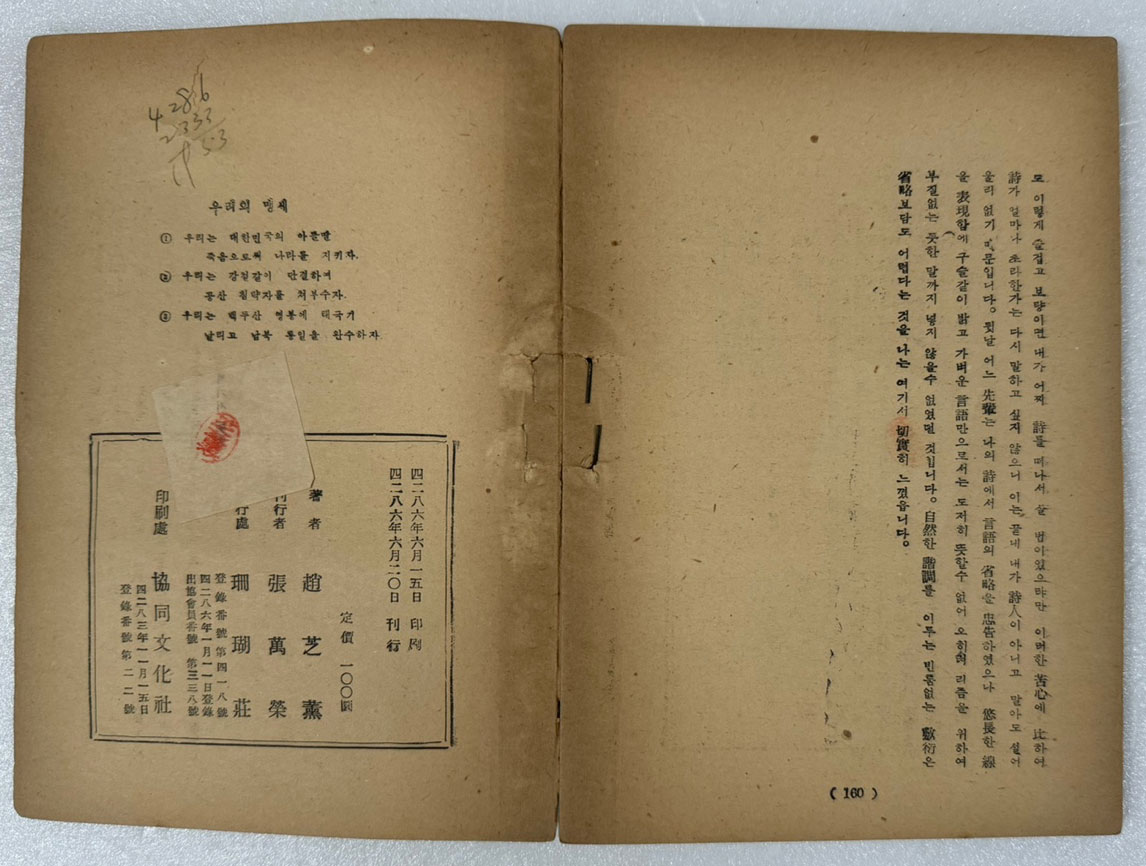 도 이렇게 즐겁고 보람이면 내가 어찌 詩를 떠나서 살 법이있으랴만 이러한 苦心에 比하여
詩가 얼마나 초라한가는 다시 말하고 싶지 않으니 이는 끝네 내가 詩人이 아니고 말아도 설어
울리 없기 때문입니다。뒷날 어느 先輩는 나의 詩에서 言語의 省略을 忠告하였으나 悠長한 線
을 表現함에 구슬같이 밝고 가벼운 言語만으로서는 도저히 뜻할수 없어 오히려 리듬을 위하여
부질없는 듯한 말까지 넣지 않을수 없었던 것입니다。自然한 諧調를 이루는 빈틈없는 敷衍은
省略보담도 어렵다는 것을 나는 여기서 切實히 느꼈읍니다。
( 160 )
우리의 맹세
① 우리는 대한민국의 아들딸
죽음으로써 나라를 지키자.
② 우리는 강철같이 단결하여
공산 침략자를 쳐부수자.
③ 우리는 백두산 영봉에 태극기
날리고 남북 통일을 완수하자
四二八六年六月一五日 印刷
四二八六年六月二〇日 刊行
定價 一〇〇圜
著者 趙芝薰
刊行者 張萬榮
行處 珊瑚莊
登錄番號 第四一八號
四二八六年一月一一日登錄
出協會員番號 第三三八號
印刷處 協同文化社
四二八三年一一月一五日
登錄番號 第二二號